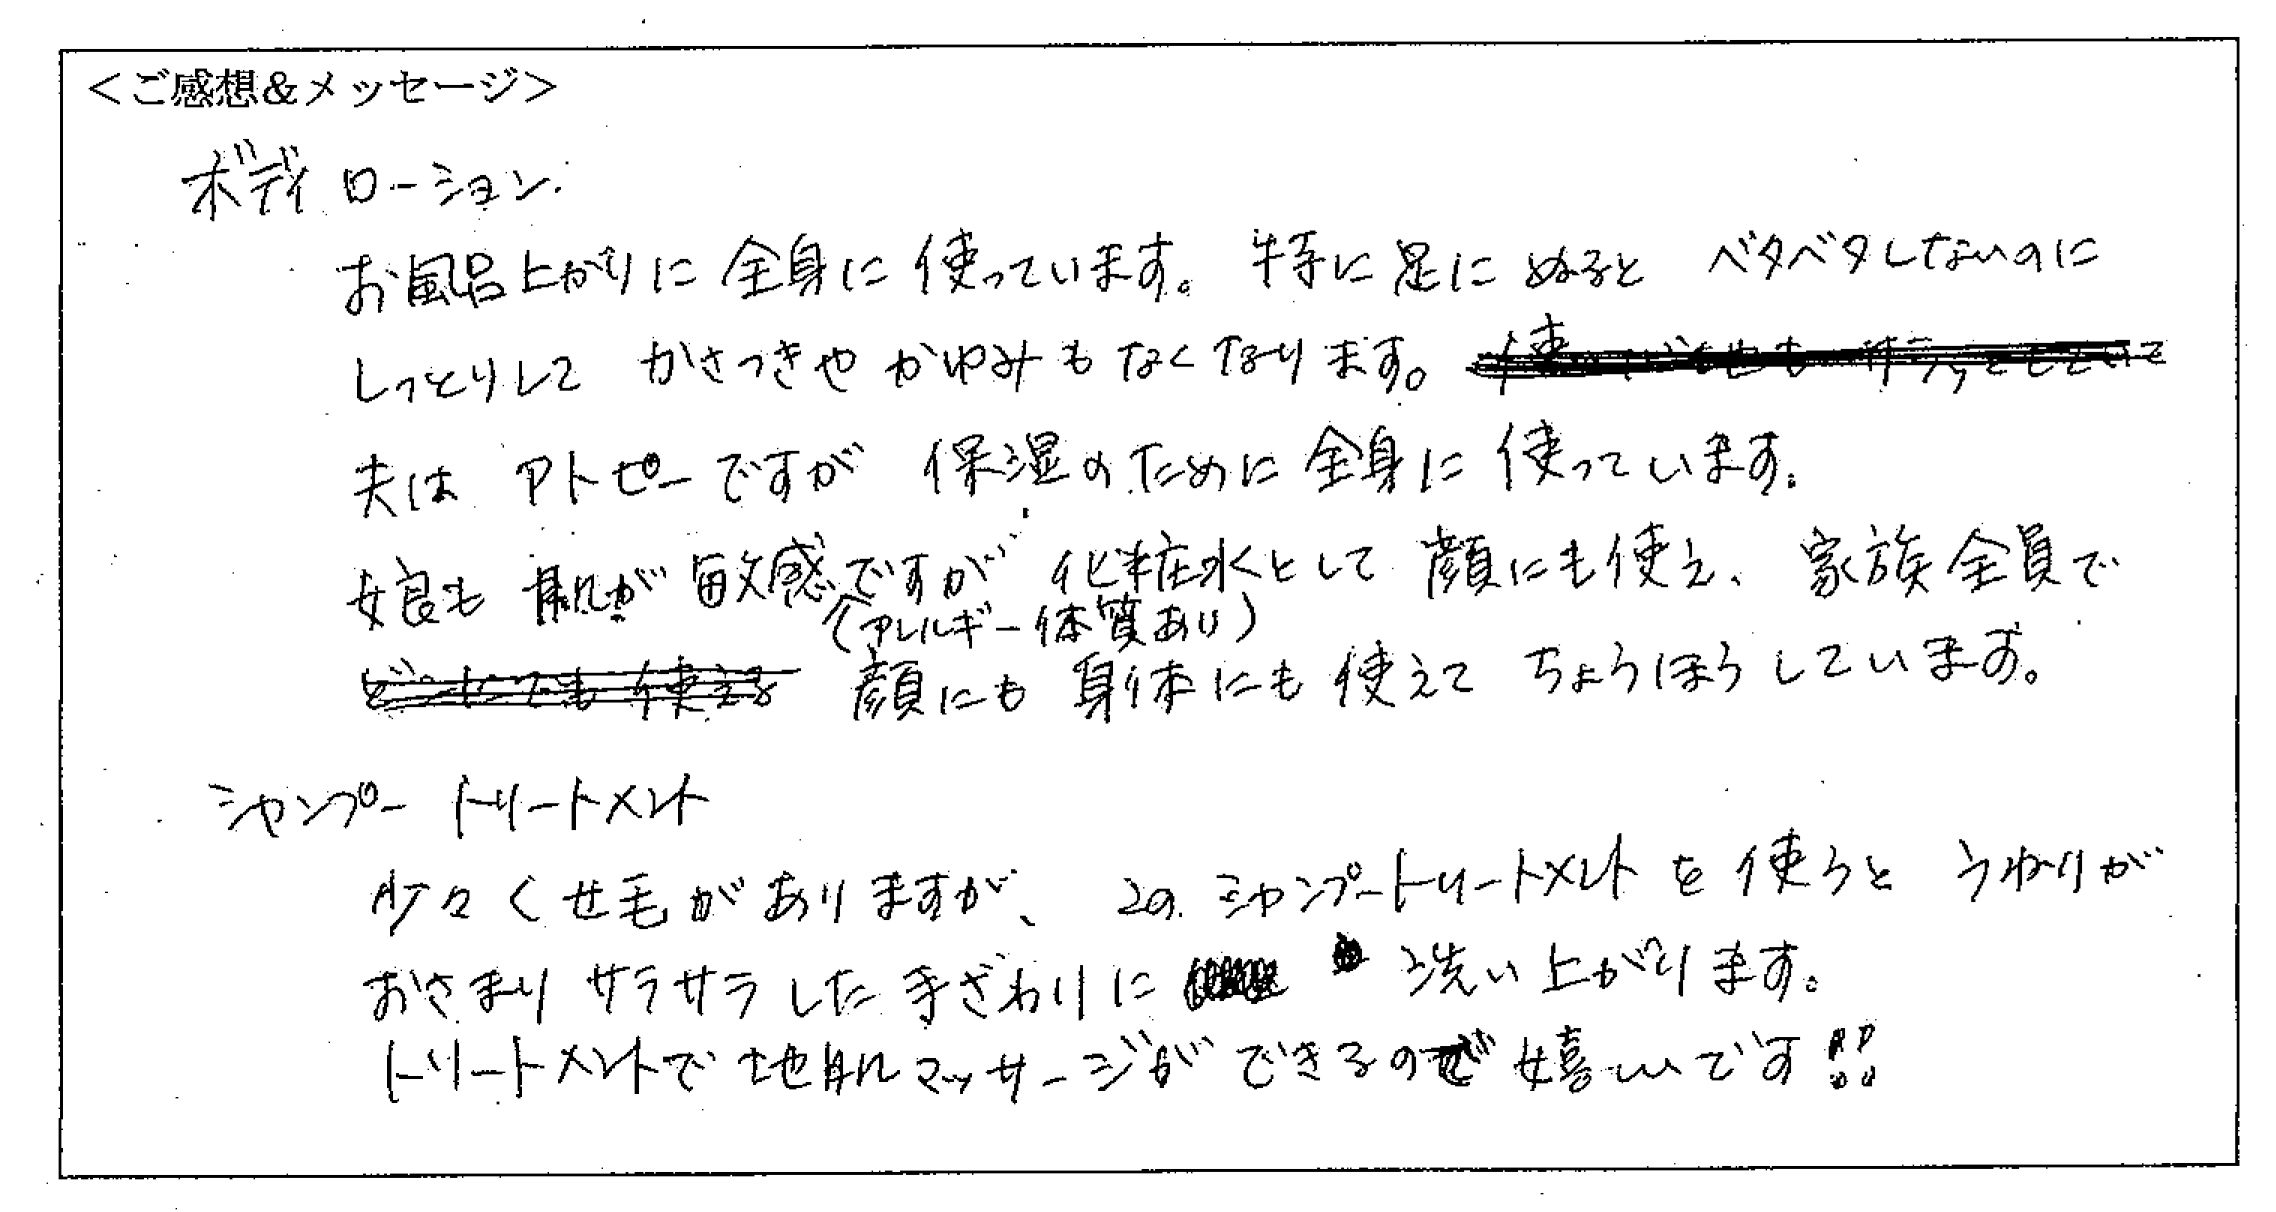 ＜ご感想&メッセージ＞
ボディローション.
お風呂上がりに全身に使っています。特に足にぬるとベタベタしないのに
しっとりしてかさつきやかゆみもなくなります。
夫はアトピーですが保湿のために全身に使っています。
娘も肌が敏感ですが化粧水として顔にも使え、家族全員で
(アレルギー体質あり)
使える 顔にも身体にも使えてちょうほうしています。
シャンプー トリートメント
少々くせ毛がありますが、このシャンプートリートメントを使うとうねりが
おさまりサラサラした手ざわりに洗い上がります。
トリートメントで地肌マッサージができるので嬉しいです!!